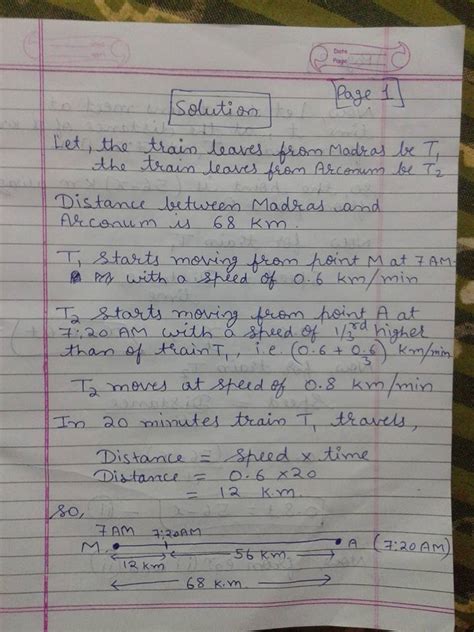 Date
Page
Page 1
Solution
Let, the train leaves from Madras be T1
the train leaves from Arconum be T2
Distance between Madras and
Arconum is 68 Km.
T1 starts moving from point M at 7 AM
with a speed of 0.6 km/min
T2 starts moving from point A at
7:20 AM with a speed of 1/3rd higher
than of train T1, i.e. (0.6 + 0.6/3) km/min
T2 moves at speed of 0.8 km/min
In 20 minutes train T1 travels,
Distance = speed x time
Distance = 0.6 x 20
= 12 K.m.
so,
7 AM 7:20AM
M A (7:20AM)
12 km 56 km.
68 k.m.